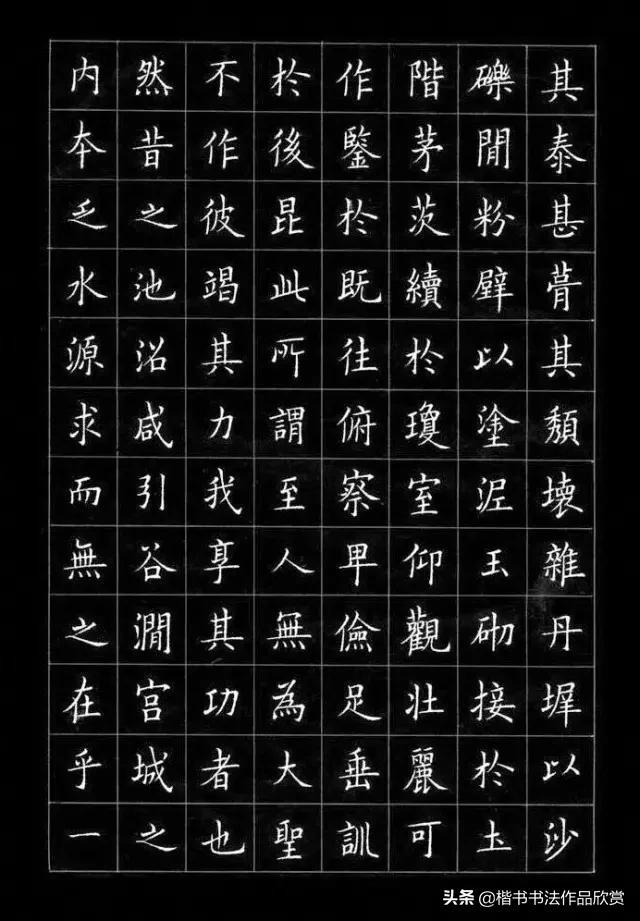 其泰甚葺其頹壞雜丹墀以沙
礫閒粉壁以塗泥玉砌接於土
階茅茨續於瓊室仰觀壯麗可
作鑒於既往俯察卑儉足垂訓
於後昆此所謂至人無為大聖
不作彼竭其力我享其功者也
然昔之池沼咸引谷澗宮城之
内本乏水源求而無之在乎一
头条 @楷书书法作品欣赏